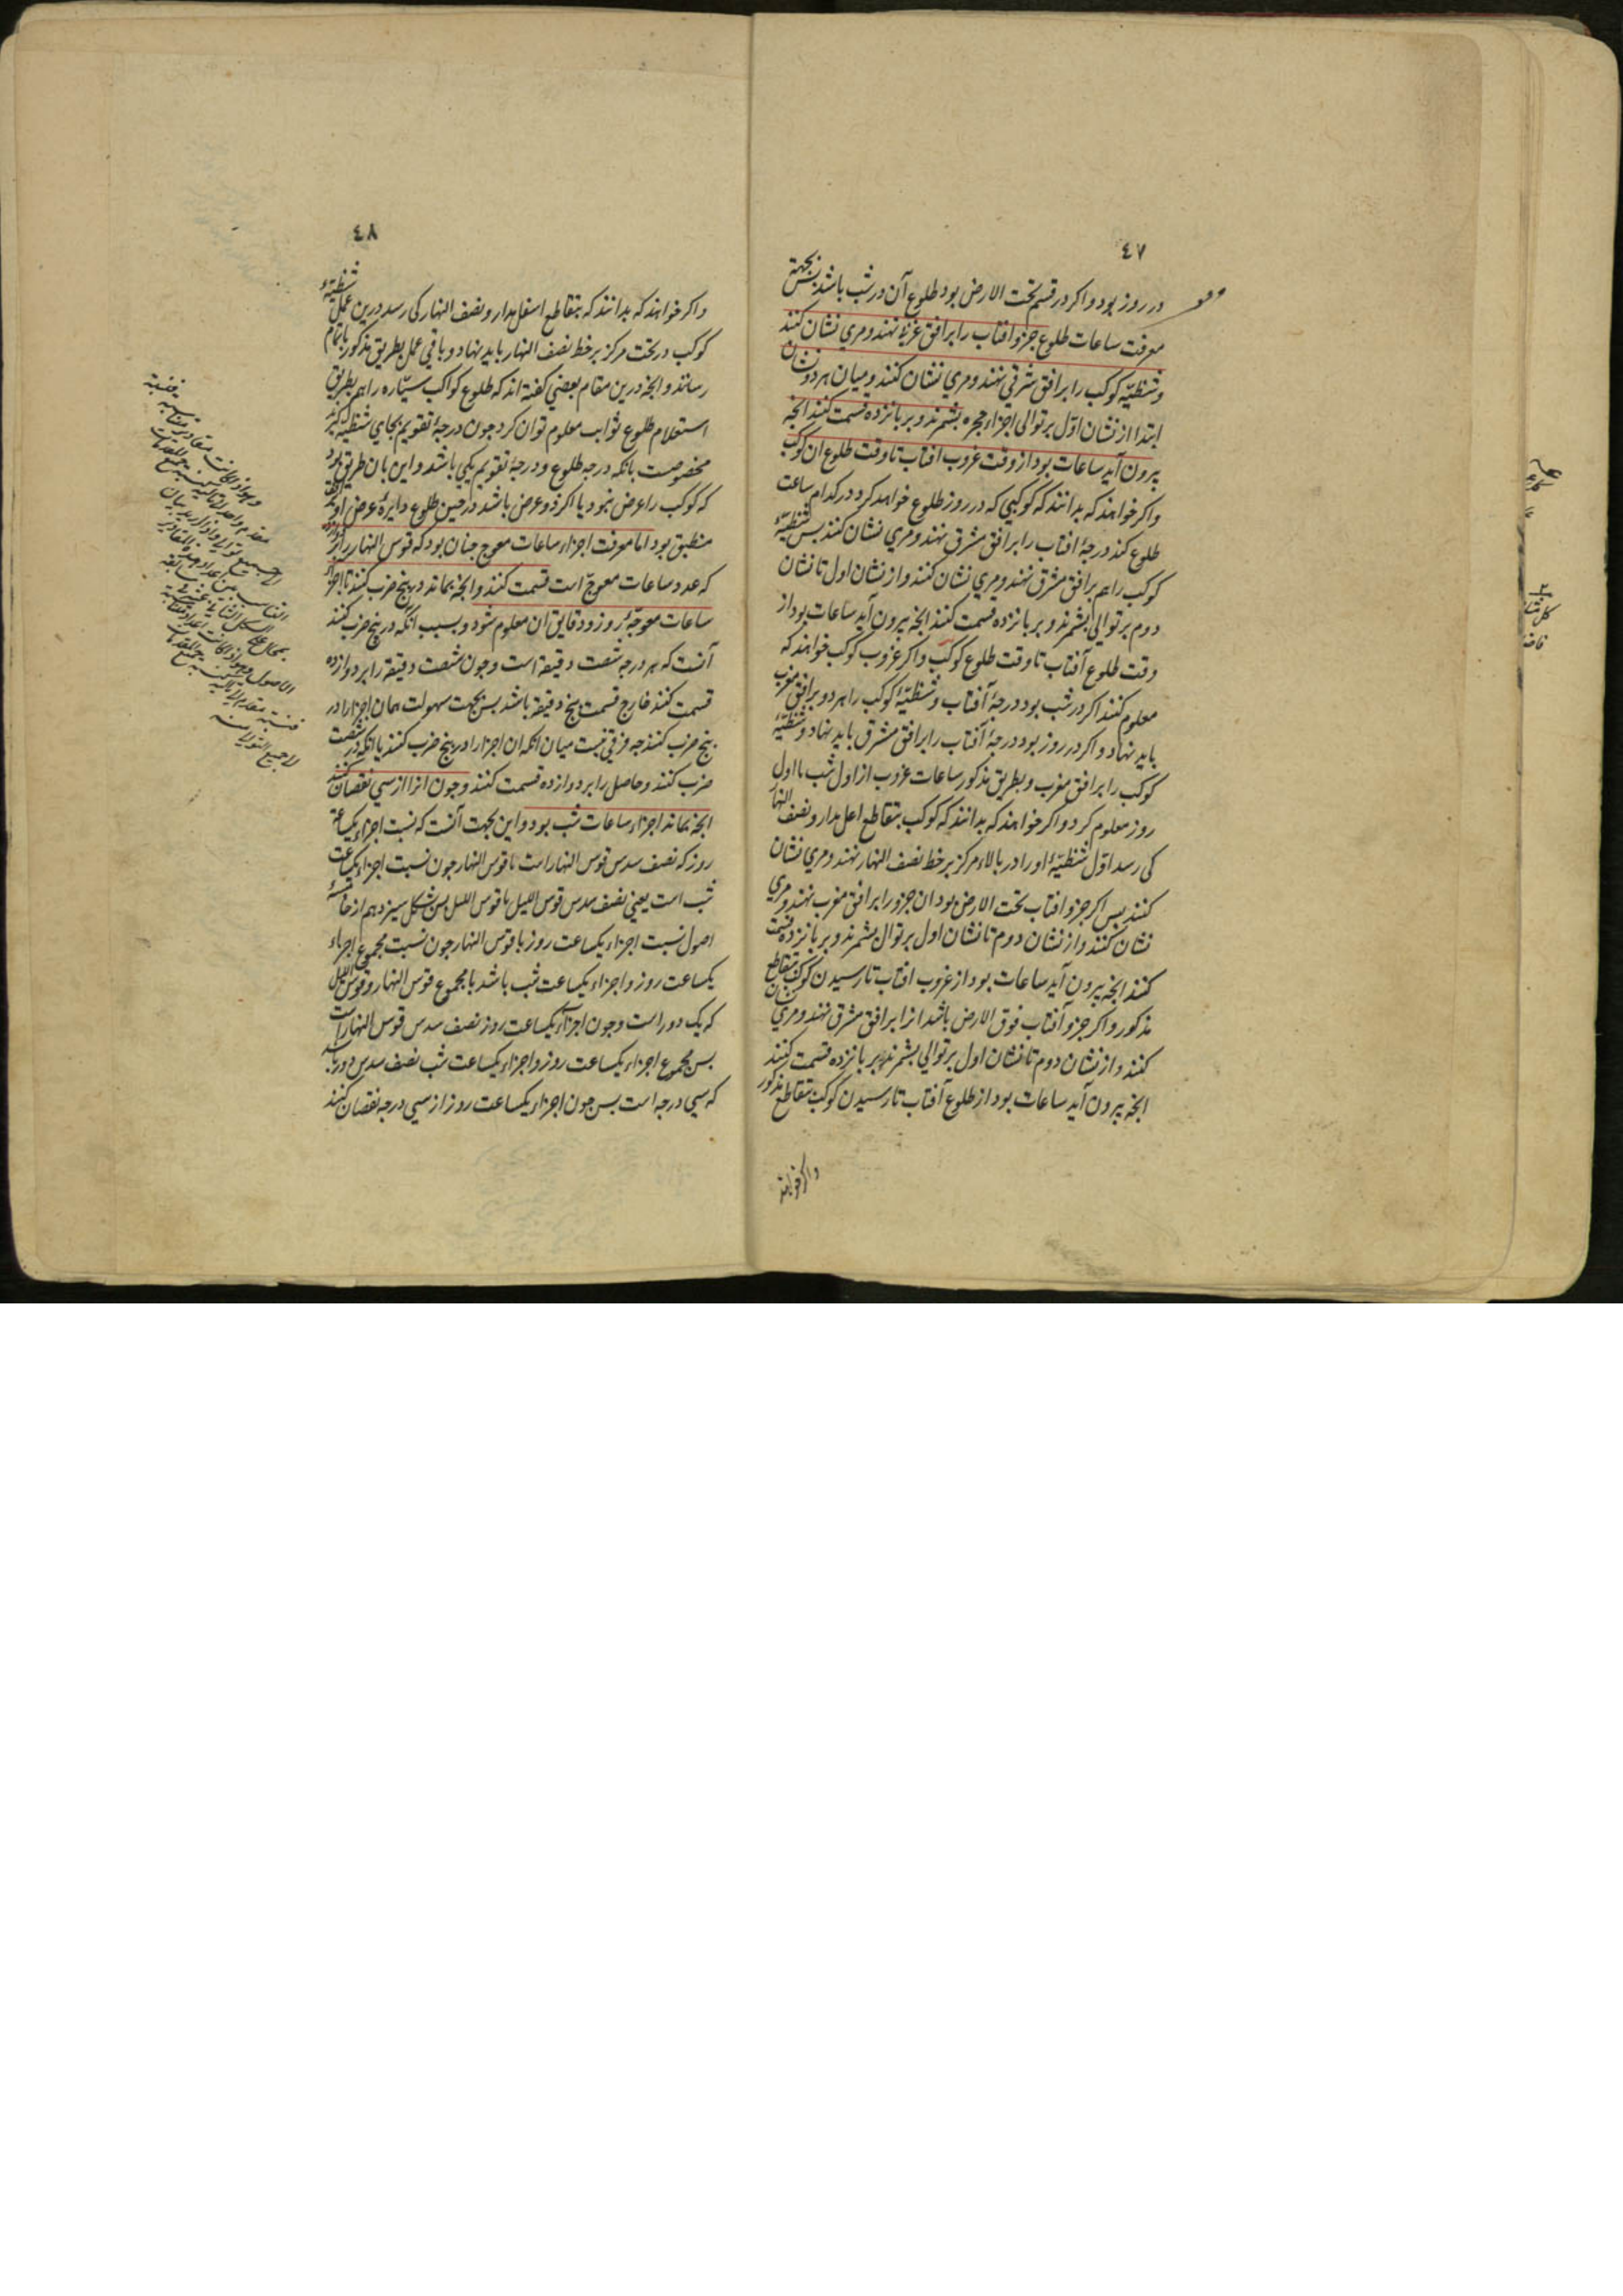 ٤٧
در روز بود و اکر در قسم تحت الارض بود طلوع آن در شب باشد پس بجهة
معرفت ساعات طلوع جزو افتاب را بر افق غربی نهند و مری نشان کنند
و شظیّه کوکب را بر افق شرقی نهند و مری نشان کنند و میان هر دو نشان
ابتدا از نشان اوّل بر توالی اجزاء حجره بشمرند و بر پانزده قسمت کنند انچه
بیرون آید ساعات بود از وقت غروب افتاب تا وقت طلوع ان کوکب
و اکر خواهند که بدانند که کوکبی که در روز طلوع خواهد کرد در کدام ساعت
طلوع کند درجهٔ افتاب را بر افق مشرق نهند و مری نشان کنند پس شظیّهٔ
کوکب را هم بر افق مشرق نهند و مری نشان کنند و از نشان اول تا نشان
دوم بر توالی بشمرند و بر پانزده قسمت کنند انچه بیرون آید ساعات بود از
وقت طلوع آفتاب تا وقت طلوع کوکب و اکر غروب کوکب خواهند که
معلوم کنند اکر در شب بود درجهٔ آفتاب و شظیّهٔ کوکب را هر دو بر افق مغرب
باید نهاد و اکر در روز بود درجهٔ آفتاب را بر افق مشرق باید نهاد و شظیّهٔ
کوکب را بر افق مغرب و بطریق مذکور ساعات غروب از اول شب یا اول
روز معلوم کرد و اکر خواهند که بدانند که کوکب بتقاطع اعلی مدار و نصف النهار
کی رسد اوّل شظیّهٔ او را در بالاء مرکز بر خط نصف النهار نهند و مری نشان
کنند پس اکر جزو افتاب تحت الارض بود ان جزو را بر افق مغرب نهند و مری
نشان کنند و از نشان دوم تا نشان اول بر توالی بشمرند و بر پانزده قسمت
کنند انچه بیرون آید ساعات بود از غروب افتاب تا رسیدن کوکب بتقاطع
مذکور و اکر جزو آفتاب فوق الارض باشد انرا بر افق مشرق نهند و مری نشان
کنند و از نشان دوم تا نشان اول بر توالی بشمرند و بر پانزده قسمت کنند
انچه بیرون آید ساعات بود از طلوع آفتاب تا رسیدن کوکب بتقاطع مذکور
واکر خواهند
٤٨
واکر خواهند که بدانند که بتقاطع اسفل مدار و نصف النهار کی رسد درین عمل شظیّهٔ
کوکب در تحت مرکز بر خط نصف النهار باید نهاد و باقی عمل بطریق مذکور باتمام
رسانند و انچه درین مقام بعضی کفته اند که طلوع کواکب سیّاره را هم بطریق
استعلام طلوع ثوابت معلوم توان کرد چون درجهٔ تقویم بجای شظیه کیرند
مخصوصست بانکه درجه طلوع و درجهٔ تقویم یکی باشد و این بان طریق بود
که کوکب را عرض نبود یا اکر ذو عرض باشد در حین طلوع دایرهٔ عرض او بر افق
منطبق بود اما معرفت اجزاء ساعات معوج چنان بود که قوس النهار را بر دوازده
که عدد ساعات معوجّ است قسمت کنند و انچه بماند در پنج ضرب کنند تا اجزاء
ساعات معوجّهٔ روز و دقایق ان معلوم شود و سبب انکه در پنج ضرب کنند
آنست که هر درجه شصت دقیقه است و چون شصت دقیقه را بر دوازده
قسمت کنند خارج قسمت پنج دقیقه باشد پس بجهت سهولت همان اجزا را در
پنج ضرب کنند چه فرقی نیست میان انکه ان اجزا را در پنج ضرب کنند یا انکه در شصت
ضرب کنند و حاصل را بر دوازده قسمت کنند و چون انرا از سی نقصان کنند
انچه بماند اجزاء ساعات شب بود و این بجهت آنست که نسبت اجزاء یکساعة
روز که نصف سدس قوس النهار است با قوس النهار چون نسبت اجزاء یکساعت
شب است یعنی نصف سدس قوس اللیل با قوس اللیل پس بشکل سیزدهم از خامسهٔ
اصول نسبت اجزاء یکساعت روز با قوس النهار چون نسبت مجموع اجزاء
یکساعت روز و اجزاء یکساعت شب باشد با مجموع قوس النهار و قوس اللیل
که یک دور است و چون اجزاء یکساعت روز نصف سدس قوس النهار است
پس مجموع اجزاء یکساعت روز و اجزاء یکساعت شب نصف سدس دور باشد
که سی درجه است پس چون اجزاء یکساعت روز از سی درجه نقصان کنند